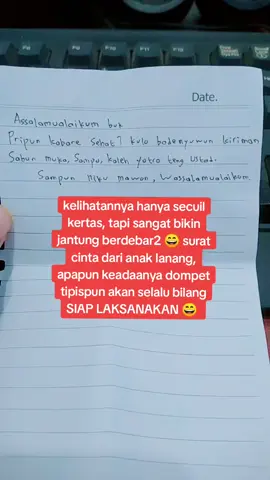 Date.
Assalamualaikum buk
Pripun kabare sehat? kulo badenyuwun kiriman
Sabun muka, Sampu, kaleh yotro teng Ustad.
Sampun niku mawon, Wassalamualaikum
kelihatannya hanya secuil
kertas, tapi sangat bikin
jantung berdebar2 😄 surat
cinta dari anak lanang,
apapun keadaanya dompet
tipispun akan selalu bilang
SIAP LAKSANAKAN 😄